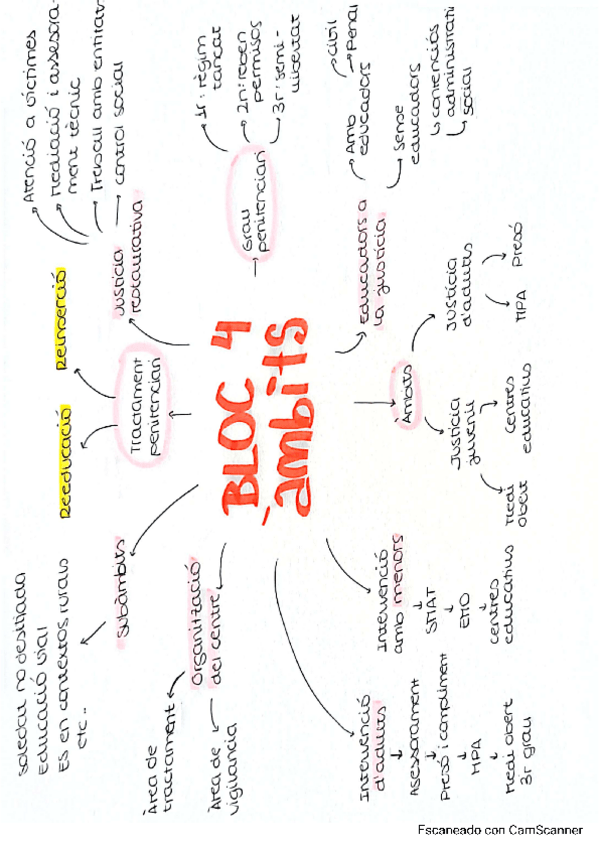 BLOC 4
àmbits
Subàmbits
Soledat no desitjada
Educació vial
Es en contextos rurals
etc..
Tractament
penitenciari
Reeducació
Reinserció
Justícia
restaurativa
Atenció a víctimes
Mediació i assesora-
ment tècnic
Treball amb entitats
control social
Grau
penitenciari
1r: règim
tancat
2n: reben
permisos
3r: semi-
llibertat
Educadors a
la justícia
Amb
educadors
Civil
Penal
Sense
educadors
contenciós
administratiu
social
Àmbits
Justícia
juvenil
Medi
obert
Centres
educatius
Justícia
d'adults
MPA
Presó
Organització
del centre
Àrea de
tractament
Àrea de
vigilancia
Intervenció
amb menors
SMAT
EMO
Centres
educatius
Intervenció
d'adults
Assessorament
Presó i compliment
MPA
Medi obert
3r grau
Escaneado con CamScanner